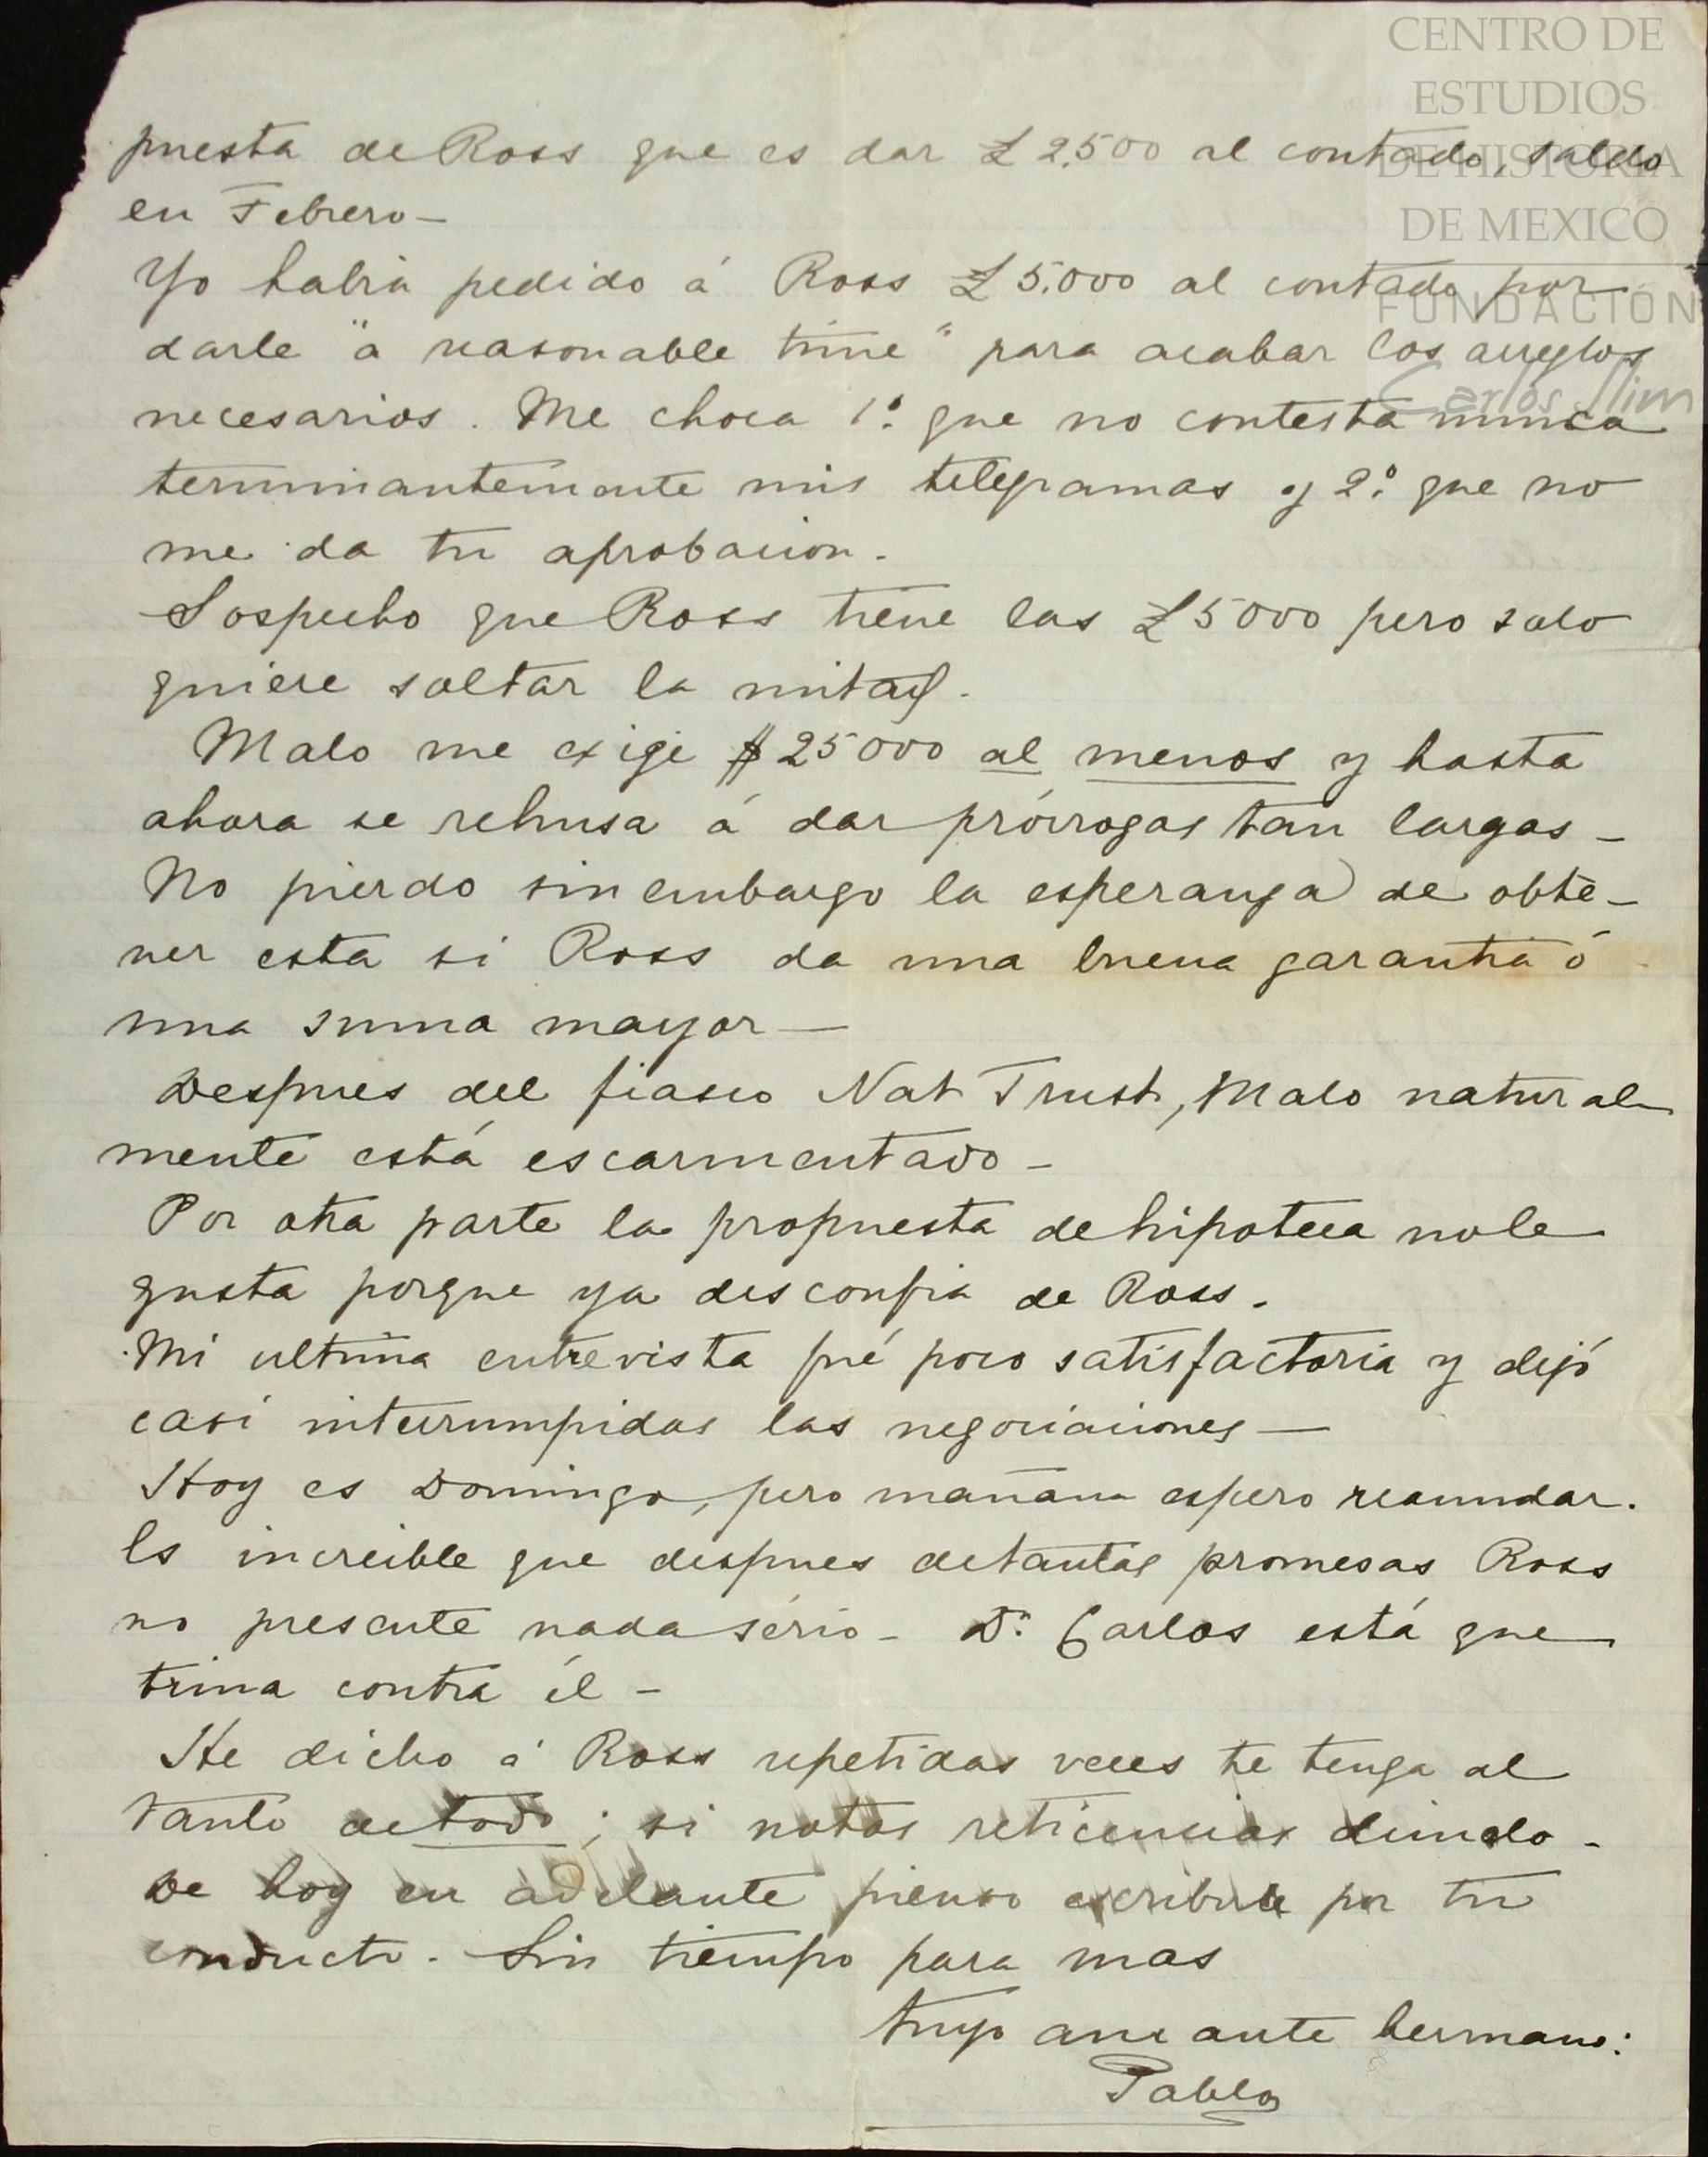 CENTRO DE
ESTUDIOS
DE HISTORIA
DE MEXICO
FUNDACIÓN
Carlos Slim
puesta de Ross que es dar £2,500 al contado, saldo
en Febrero —
Yo habia pedido á Ross £5.000 al contado por
darle "a reasonable time" para acabar los arreglos
necesarios. Me choca 1º que no contesta nunca
terminantemente mis telegramas y 2º que no
me da tu aprobacion.
Sospecho que Ross tiene las £5000 pero solo
quiere soltar la mitad.
Malo me exige $25000 al menos y hasta
ahora se rehusa á dar prórrogas tan largas —
No pierdo sin embargo la esperanza de obte-
ner esta si Ross da una buena garantia ó
una suma mayor —
Despues del fiasco Nat Trust, Malo natural-
mente está escarmentado —
Por otra parte la propuesta de hipoteca no le
gusta porque ya desconfia de Ross.
Mi ultima entrevista fué poco satisfactoria y dejó
casi interrumpidas las negociaciones —
Hoy es Domingo, pero mañana espero reanudar.
Es increible que despues de tantas promesas Ross
no presente nada sério — Dn Carlos está que
trina contra él —
He dicho á Ross repetidas veces te tenga al
tanto de todo; si notas reticencias dimelo —
De hoy en adelante pienso escribirle por tu
conducto. Sin tiempo para mas
tuyo amante hermano:
Pablo